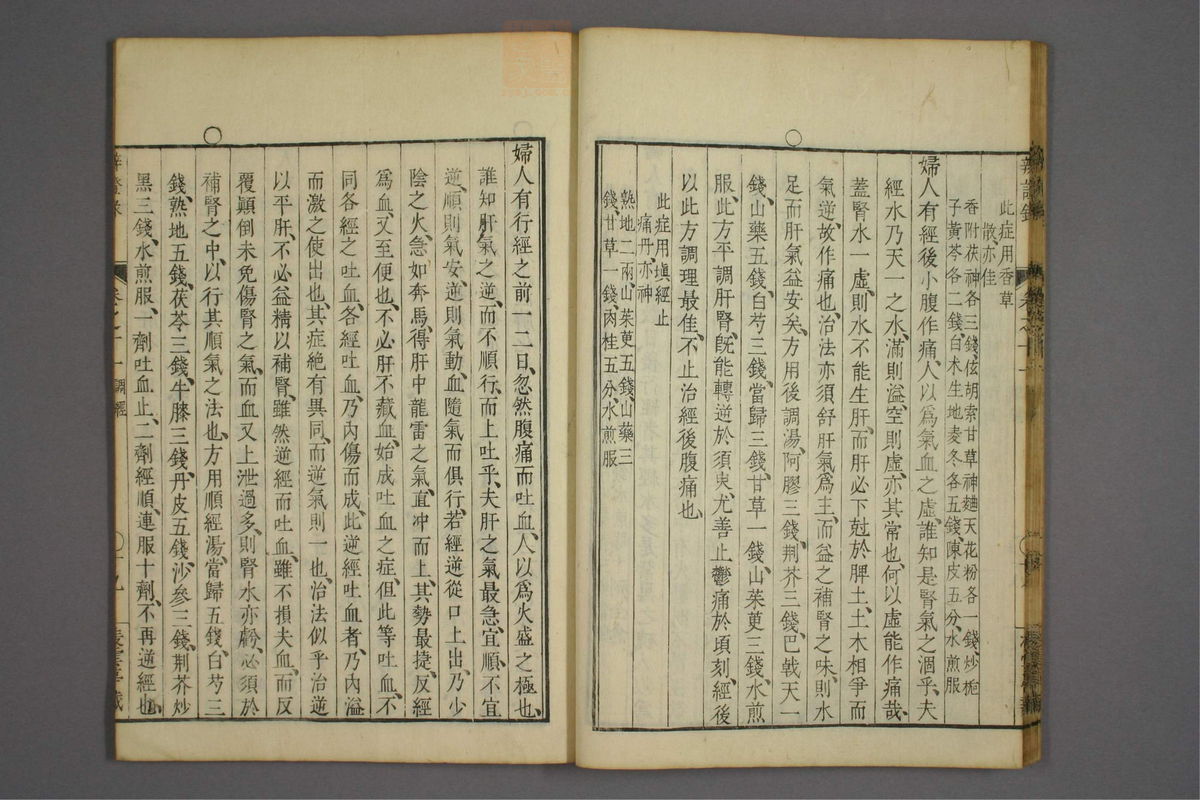 此症用香草
散亦佳
香附茯神各三錢伭胡索甘草神麯天花粉各一錢炒梔
子黃芩各二錢白术生地麦冬各五錢陳皮五分水煎服
婦人有經後小腹作痛人以爲氣血之虛誰知是腎氣之涸乎夫
經水乃天一之水滿則溢空則虛亦其常也何以虛能作痛哉
蓋腎水一虛則水不能生肝而肝必下尅於脾土土木相爭而
氣逆故作痛也治法亦須舒肝氣爲主而益之補腎之味則水
足而肝氣益安矣方用後調湯阿膠三錢荆芥三錢巴戟天一
錢山藥五錢白芍三錢當歸三錢甘草一錢山茱萸三錢水煎
服此方平調肝腎旣能轉逆於須臾尤善止鬱痛於頃刻經後
以此方調理最佳不止治經後腹痛也
此症用塡經止
痛丹亦神
熟地二兩山茱萸五錢山藥三
錢甘草一錢肉桂五分水煎服
婦人有行經之前一二日忽然腹痛而吐血人以爲火盛之極也
誰知肝氣之逆而不順行而上吐乎夫肝之氣最急宜順不宜
逆順則氣安逆則氣動血隨氣而俱行若經逆從口上出乃少
陰之火急如奔馬得肝中龍雷之氣直冲而上其勢最捷反經
爲血又至便也不必肝不藏血始成吐血之症但此等吐血不
同各經之吐血各經吐血乃內傷而成此逆經吐血者乃內溢
而激之使出也其症絶有異同而逆氣則一也治法似乎治逆
以平肝不必益精以補腎雖然逆經而吐血雖不損夫血而反
覆顚倒未免傷腎之氣而血又上泄過多則腎水亦虧必須於
補腎之中以行其順氣之法也方用順經湯當歸五錢白芍三
錢熟地五錢茯苓三錢牛膝三錢丹皮五錢沙參三錢荆芥炒
黑三錢水煎服一劑吐血止二劑經順連服十劑不再逆經也
卷之十一 調經